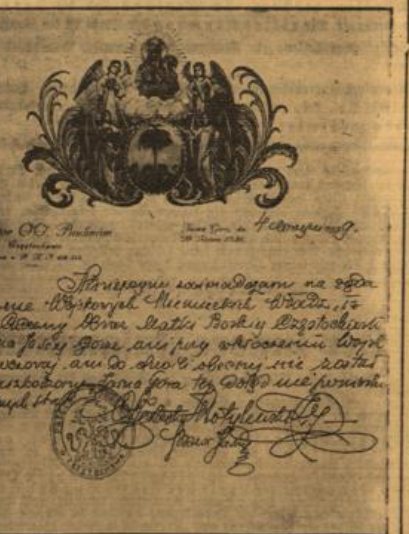 OO. Paulinów
Częstochowa
Jasna Góra, dn. 4 września 1939.
Niniejszym zaświadczam na żąda
nie Wojskowych Niemieckich Władz, iż
Obraz Matki Boskiej Częstochowsk
na Jasnej Górze ani przy wkroczeniu Wojsk
wczoraj, ani do chwili obecnej nie został
uszkodzony. Jasna Góra też dotąd nie poniosła
Jasna Góra